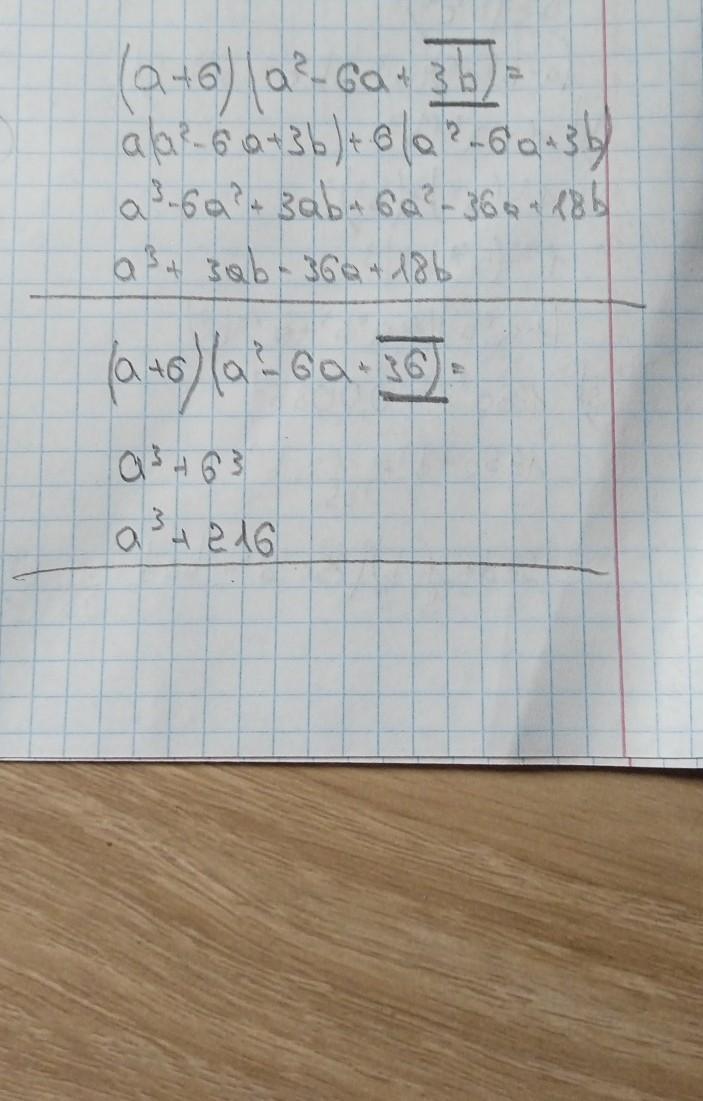 (a+6)(a²-6a+3b)=
a(a²-6a+3b)+6(a²-6a+3b)
a³-6a²+3ab+6a²-36a+18b
a³+3ab-36a+18b
(a+6)(a²-6a+36)=
a³+6³
a³+216